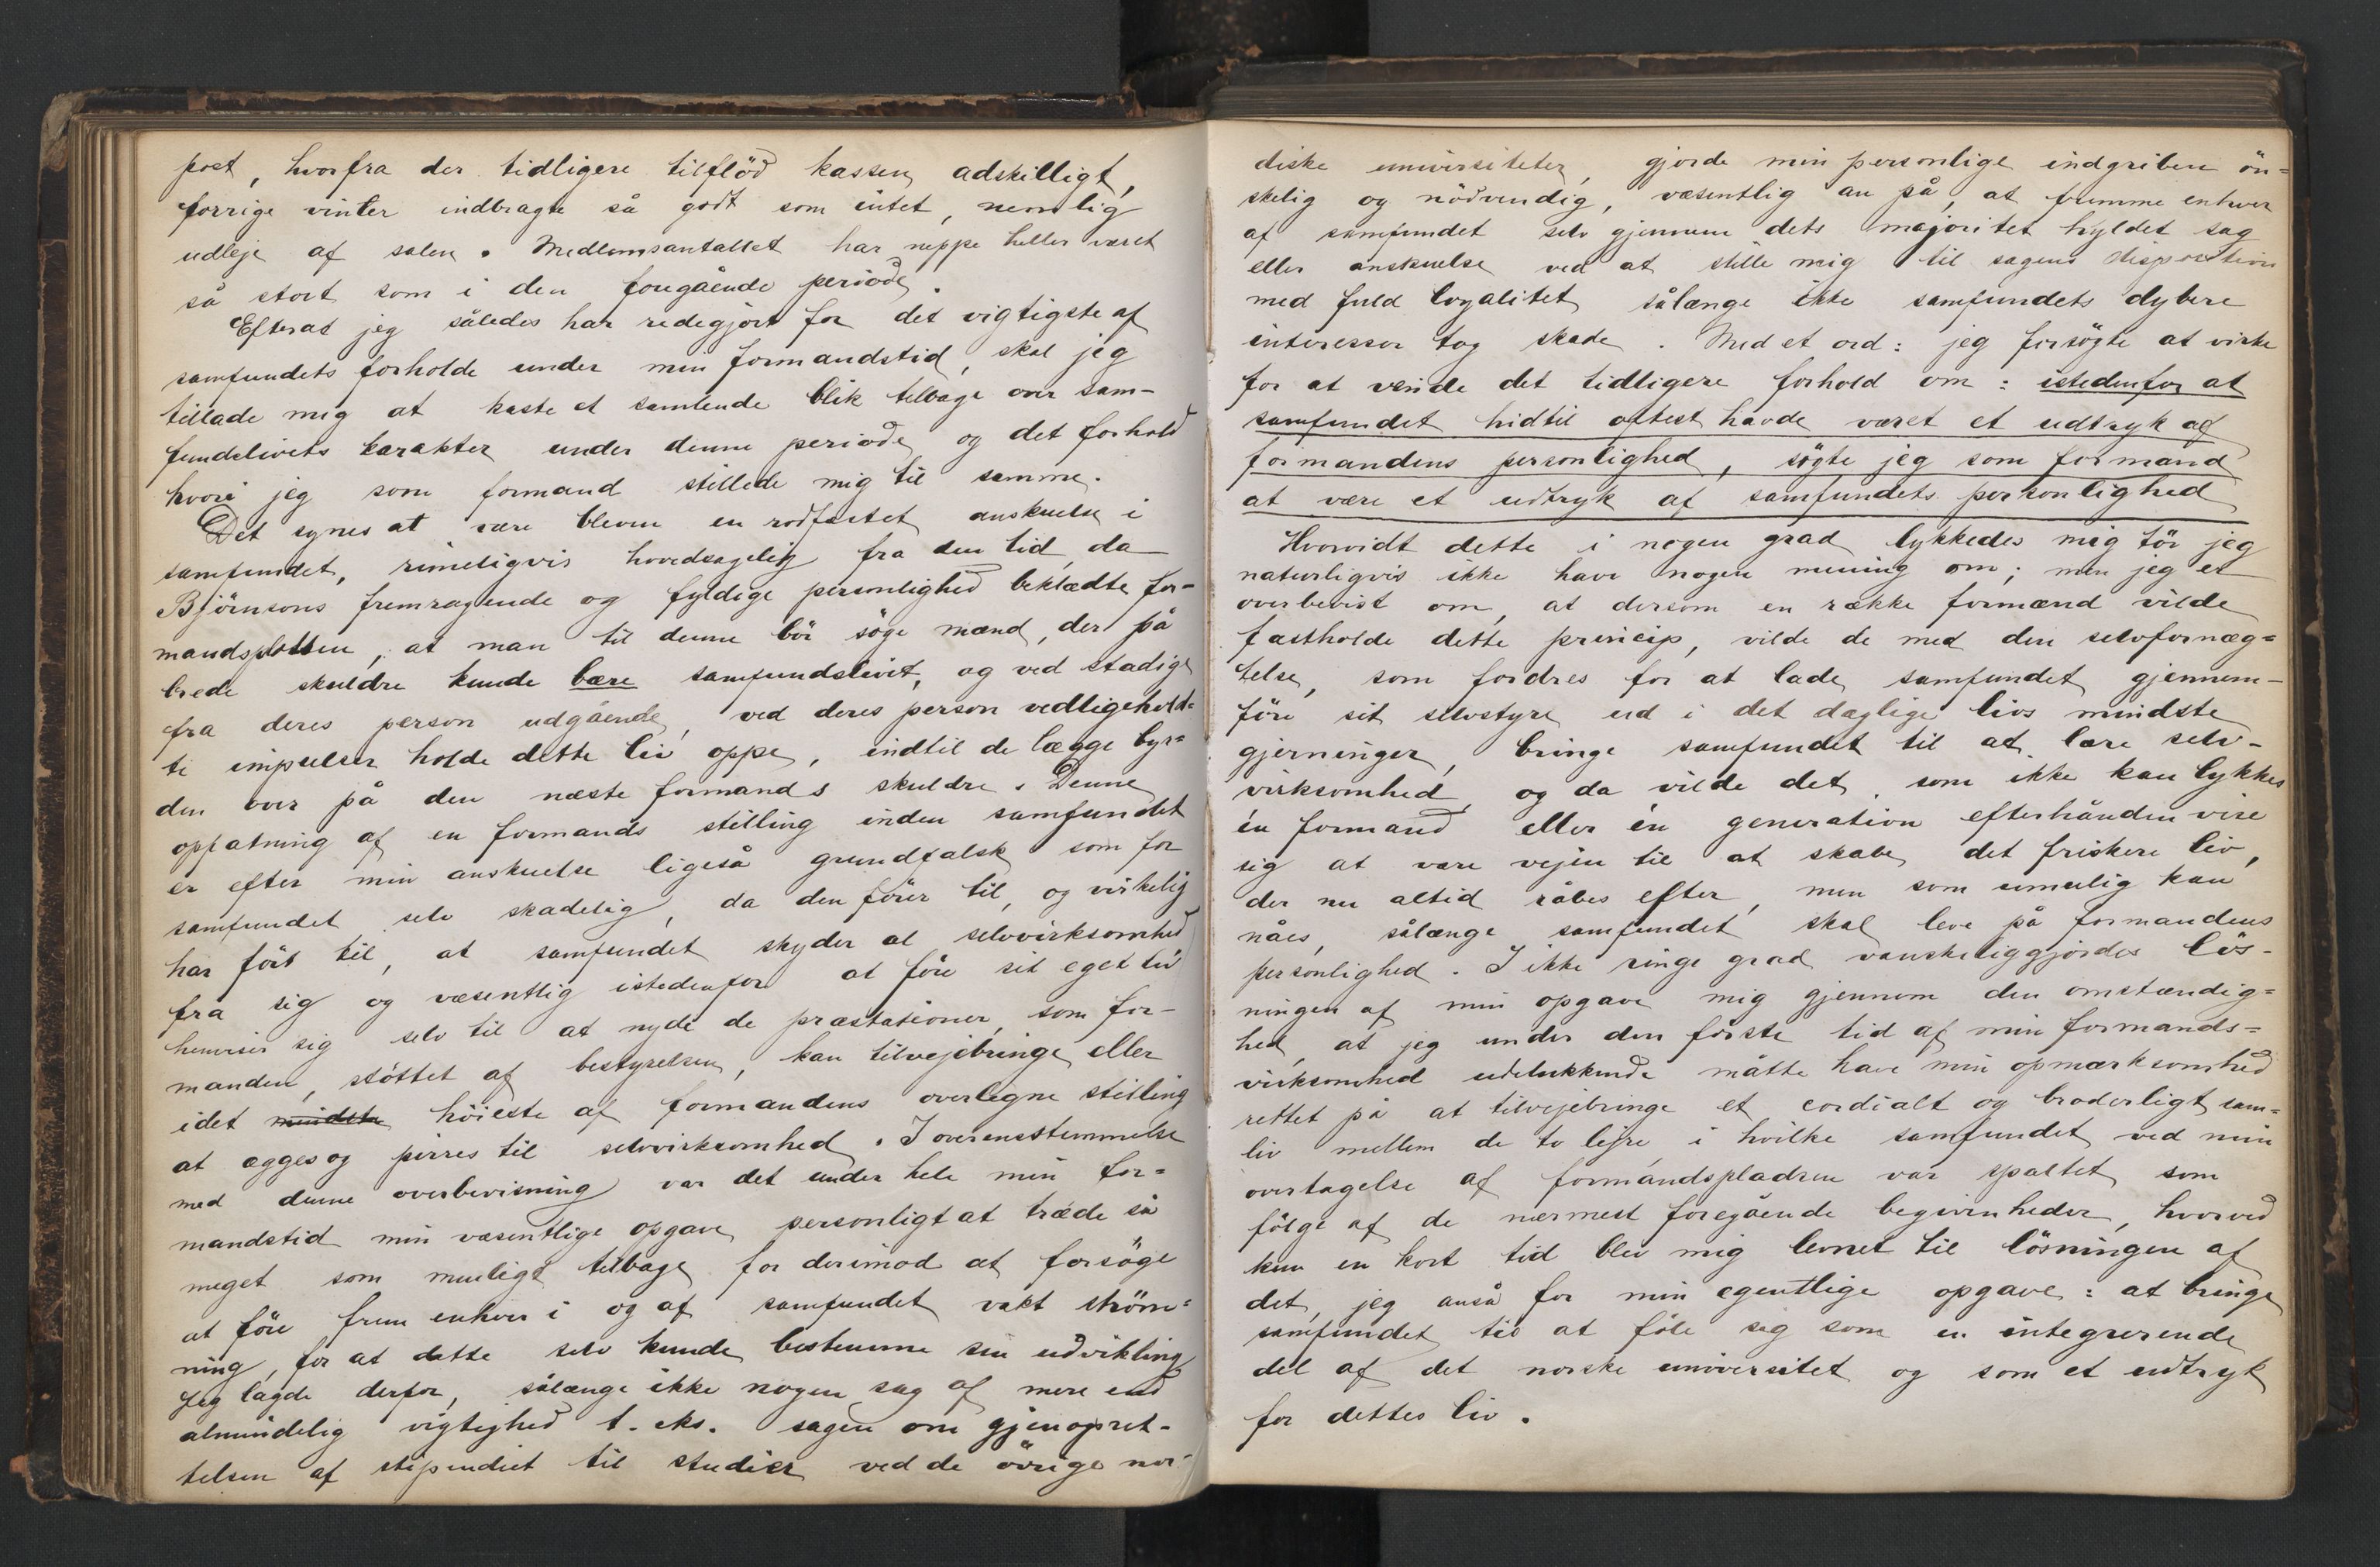 post, hvorfra der tidligere tilflöd kassen adskilligt,
forrige vinter indbragte så godt som intet, nemlig
udleje af salen. Medlemsantallet har neppe heller været
så stort som i den foregående periode.
Efterat jeg således har redegjort for det vigtigste af
samfundets forholde under min formandstid, skal jeg
tillade mig at kaste et samlende blik tilbage over sam-
fundslivets karakter under denne periode og det forhold
hvori jeg som formand stillede mig til samme.
Det synes at være bleven en rodfæstet anskuelse i
samfundet, rimeligvis hovedsagelig fra den tid, da
Björnsons fremragende og fyldige personlighed beklædte for-
mandsposten, at man til denne bör söge mænd, der på
brede skuldre kunde bære samfundslivet, og ved stadige
fra deres person udgående, ved deres person vedligehold-
te impulser holde dette liv oppe, indtil de lægge byr-
den over på den næste formands skuldre. Denne
opfatning af en formands stilling inden samfundet
er efter min anskuelse ligeså grundfalsk som for
samfundet selv skadelig, da den förer til, og virkelig
har fört til, at samfundet skyder al selvvirksomhed
fra sig og væsentlig istedenfor at före sit eget liv
henviser sig selv til at nyde de præstationer, som for-
manden, stöttet af bestyrelsen, kan tilvejebringe eller
idet mindste höieste af formandens overlegne stilling
at ægges og pirres til selvvirksomhed. I overensstemmelse
med denne overbevisning var det under hele min for-
mandstid min væsentlige opgave personligt at træde så
meget som muligt tilbage for derimod at forsöge
at före frem enhver i og af samfundet vakt ström-
ning, for at dette selv kunde bestemme sin udvikling.
Jeg lagde derfor, sålænge ikke nogen sag af mere end
almindelig vigtighed t. eks. sagen om gjenopret-
telsen af stipendiet til studier ved de övrige nor-
diske universiteter, gjorde min personlige indgriben ön-
skelig og nödvendig, væsentlig an på, at fremme enhver
af samfundet selv gjennem dets majoritet hyldet sag
eller anskuelse ved at stille mig til sagens disposition
med fuld loyalitet sålænge ikke samfundets dybere
interesser tog skade. Med et ord: jeg forsögte at virke
for at vende det tidligere forhold om: istedenfor at
samfundet hidtil oftest havde været et udtryk af
formandens personlighed, sögte jeg som formand
at være et udtryk af samfundets personlighed
Hvorvidt dette i nogen grad lykkedes mig tör jeg
naturligvis ikke have nogen mening om; men jeg er
overbevist om, at dersom en række formænd vilde
fastholde dette princip, vilde de med den selvfornæg-
telse, som fordres for at lade samfundet gjennem-
före sit selvstyre ud i det daglige livs mindste
gjerninger, bringe samfundet til at lære selv-
virksomhed, og da vilde det, som ikke kan lykkes
én formand eller én generation efterhånden vise
sig at være vejen til at skabe det friskere liv,
der nu altid råbes efter, men som umulig kan
nåes, sålænge samfundet skal leve på formandens
personlighed. I ikke ringe grad vanskeliggjordes lös-
ningen af min opgave mig gjennem den omstændig-
hed, at jeg under den förste tid af min formands-
virksomhed udelukkende måtte have min opmærksomhed
rettet på at tilvejebringe et cordialt og broderligt sam-
liv mellem de to lejre, i hvilke samfundet ved min
overtagelse af formandspladsen var spaltet som
fölge af de nærmest foregående begivenheder, hvorved
kun en kort tid blev mig levnet til lösningen af
det, jeg anså for min egentlige opgave: at bringe
samfundet til at föle sig som en integrerende
del af det norske universitet og som et udtryk
for dettes liv.